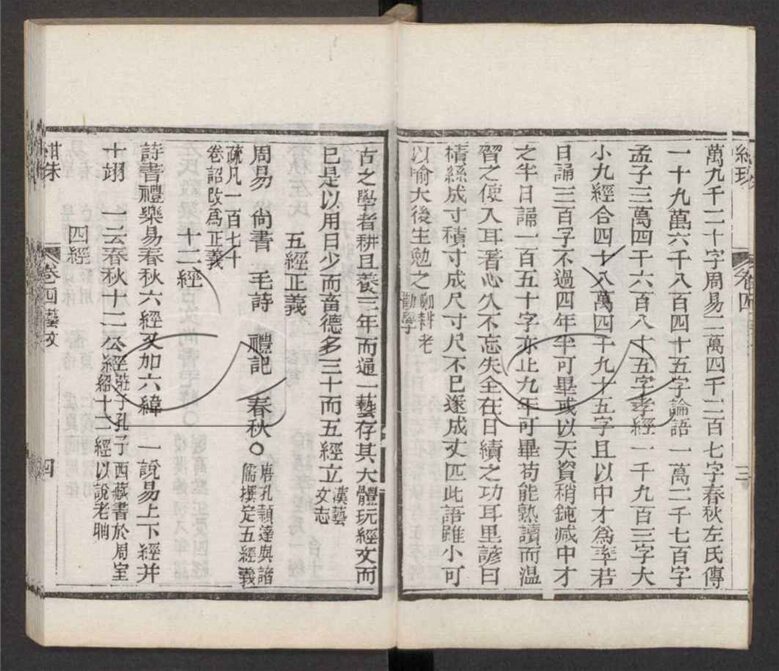 萬九千二十字周易二萬四千二百七字春秋左氏傳
一十九萬六千八百四十五字論語一萬二千七百字
孟子三萬四千六百八十五字孝經一千九百三字大
小九經合四十八萬四千九十五字且以中才爲率若
日誦三百字不過四年半可畢或以天資稍鈍減中才
之半日誦一百五十字亦止九年可畢苟能熟讀而溫
習之使入耳著心久不忘失全在日績之功耳里諺曰
積絲成寸積寸成尺寸尺不已遂成丈匹此語雖小可
以喻大後生勉之
勸學
卷四藝文
四
古之學者耕且養三年而通一藝存其大體玩經文而
已是以用日少而畜德多三十而五經立漢藝
文志
五經正義
周易 尙書 毛詩 禮記 春秋〇唐孔穎達與諸
儒撰定五經義
疏凡一百七十
卷詔改爲正義
十二經
詩書禮樂易春秋六經又加六緯 一說易上下經并
十翊 一云春秋十二公經莊子孔子西藏書於周室
繙十二經以說老聃
四經